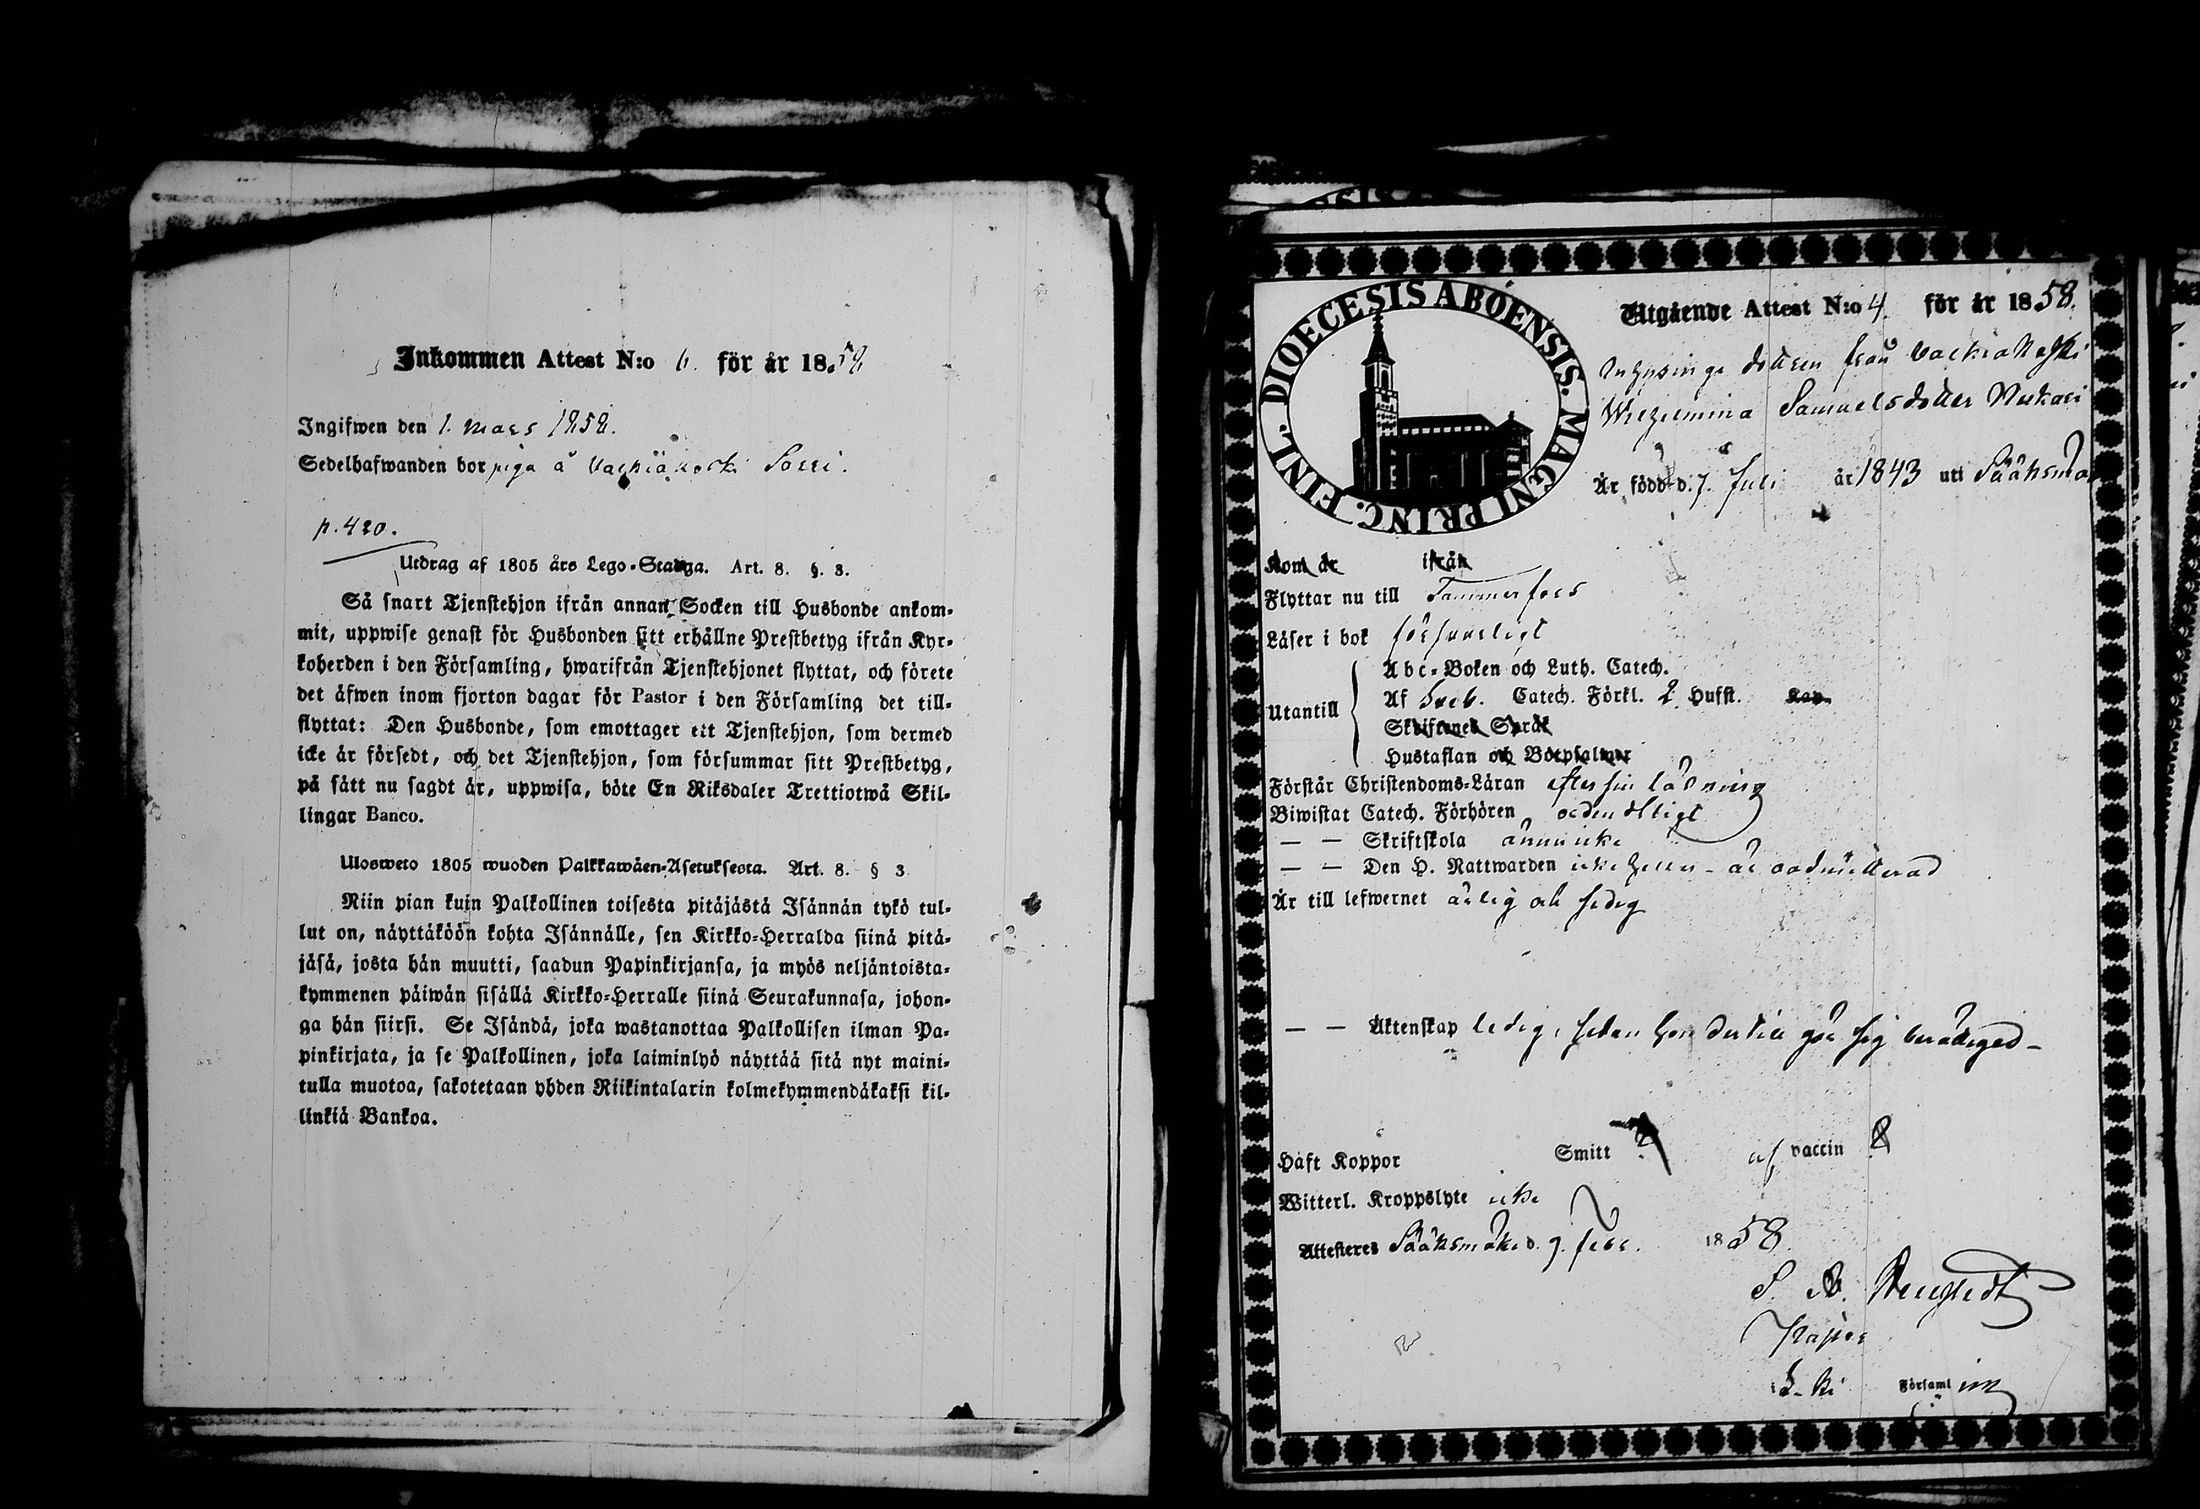 Inkommen Attest N:o 6. för år 1858
Ingifwen den 1. Mars 1858.
Sedelhafwanden bor piga å Sorri.
p. 420.
Utdrag af 1805 års Lego-Stadga. Art. 8. §. 3.
Så snart Tjenstehjon ifrån annan Socken till Husbonde ankom-
mit, uppwise genast för Husbonden sitt erhållne Prestbetyg ifrån Kyr-
koherden i den Församling, hwarifrån Tjenstehjonet flyttat, och förete
det äfwen inom fjorton dagar för Pastor i den Församling det till-
flyttat: Den Husbonde, som emottager ett Tjenstehjon, som dermed
icke är försedt, och det Tjenstehjon, som försummar sitt Prestbetyg,
på sätt nu sagdt är, uppwisa, böte En Riksdaler Trettiotwå Skil-
lingar Banco.
Ulosweto 1805 wuoden Palkkawäen-Asetuksesta. Art. 8. § 3
Niin pian kuin Palkollinen toisesta pitäjästä Isännän tykö tul-
lut on, näyttäköön kohta Isännälle, sen Kirkko-Herralda siinä pitä-
jäsä, josta hän muutti, saadun Papinkirjansa, ja myös neljäntoista-
kymmenen päiwän sisällä Kirkko-Herralle siinä Seurakunnasa, johon-
ga hän siirsi. Se Isändä, joka wastanottaa Palkollisen ilman Pa-
pinkirjata, ja se Palkollinen, joka laiminlyö näyttää sitä nyt maini-
tulla muotoa, sakotetaan yhden Riikintalarin kolmekymmendäkaksi kil-
linkiä Bankoa.
DIOECESIS ABOENSIS. MAGNI PRINC. FINL.
Utgående Attest N:o 4. för år 1858.
dottren från
Wilhelmina Samuelsdotter
Är född d. 7. Juli år 1843 uti Sääksmä
Kom år ifrån
Flyttar nu till Tammerfors
Läser i bok försvarligt
Abc-Boken och Luth. Catech.
Utantill
Af Sveb. Catech. Förkl. 2 Hufst. Kap.
Skriftenes Språk
Hustaflan och Botpsalmer
Förstår Christendoms-Läran efter sin ålder
Biwistat Catech. Förhören ordentligt
— — Skriftskola ännu icke
— — Den H. Nattwarden icke heller - är oadmitterad
Är till lefwernet ärlig och sedig
— — Äktenskap ledig, sedan hon dertill gör sig berättigad -
Haft Koppor Smitt af vaccin
Witterl. Kroppslyte icke
Attesteras Sääksmäki d. 9. Febr. 1858
S. A.
Församl